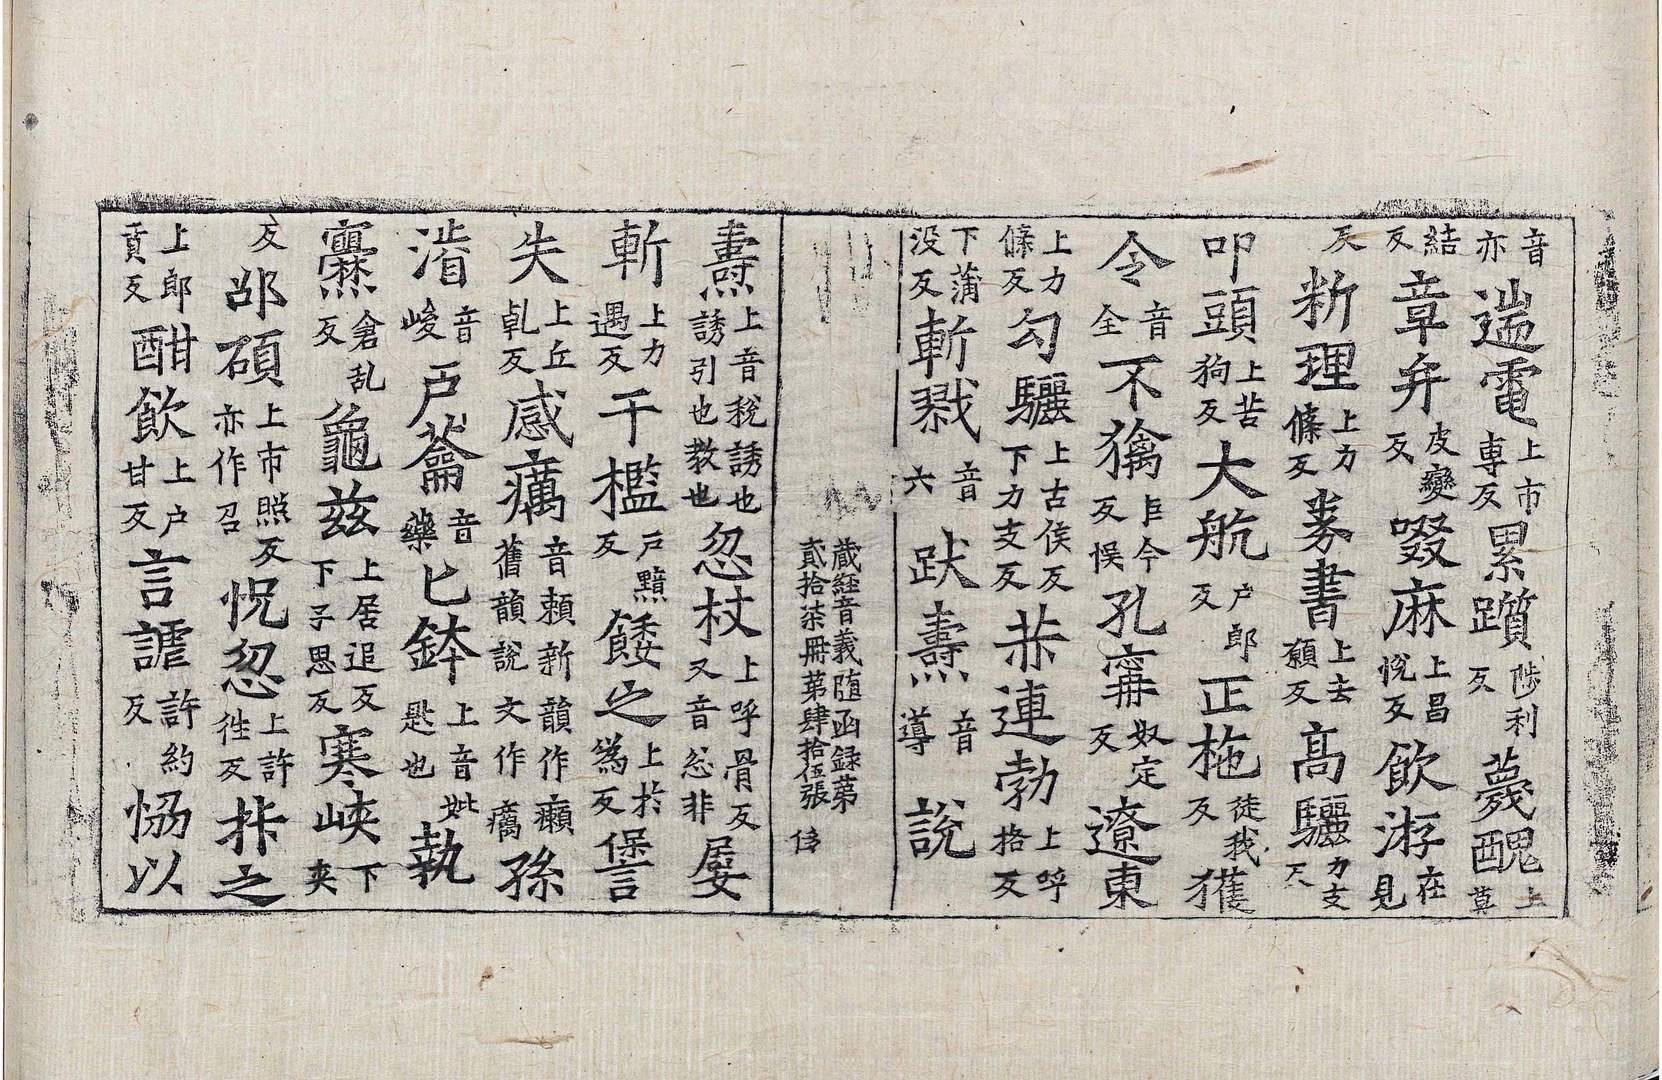 音亦遄電上市専反累躓陟利反薎醜上莫
結反章弁皮變反啜麻上昌悅反飲洊在見
反断理上力條反券書上去願反高驪力支反
叩頭上苦狗反大航户郎反正柂徒我反獲
令音全不獦巨今反悮孔寗奴定反遼東
上力條反勾驪上古侯反下力支反恭連勃上呼格反
下蒲没反斬戮音六趺燾音導說
蔵經音義随函録第貳拾柒冊第肆拾伍張
燾上音稅誘也誘引也教也忽杖上呼骨反又音忩非屡
斬上力遇反干檻户黤反餧之上於爲反堡言
失上丘乹反感癘音頼新韻作癩舊韻說文作癘孫
湝音峻戸蘥音藥匕鉢上音妣匙也執
爨倉乱反龜兹上居追反下子思反寒峽下夾
反邵碩上市照反亦作召怳忽上許往反拤之
上郎貢反酣飲上户甘反言謔許約反恊以